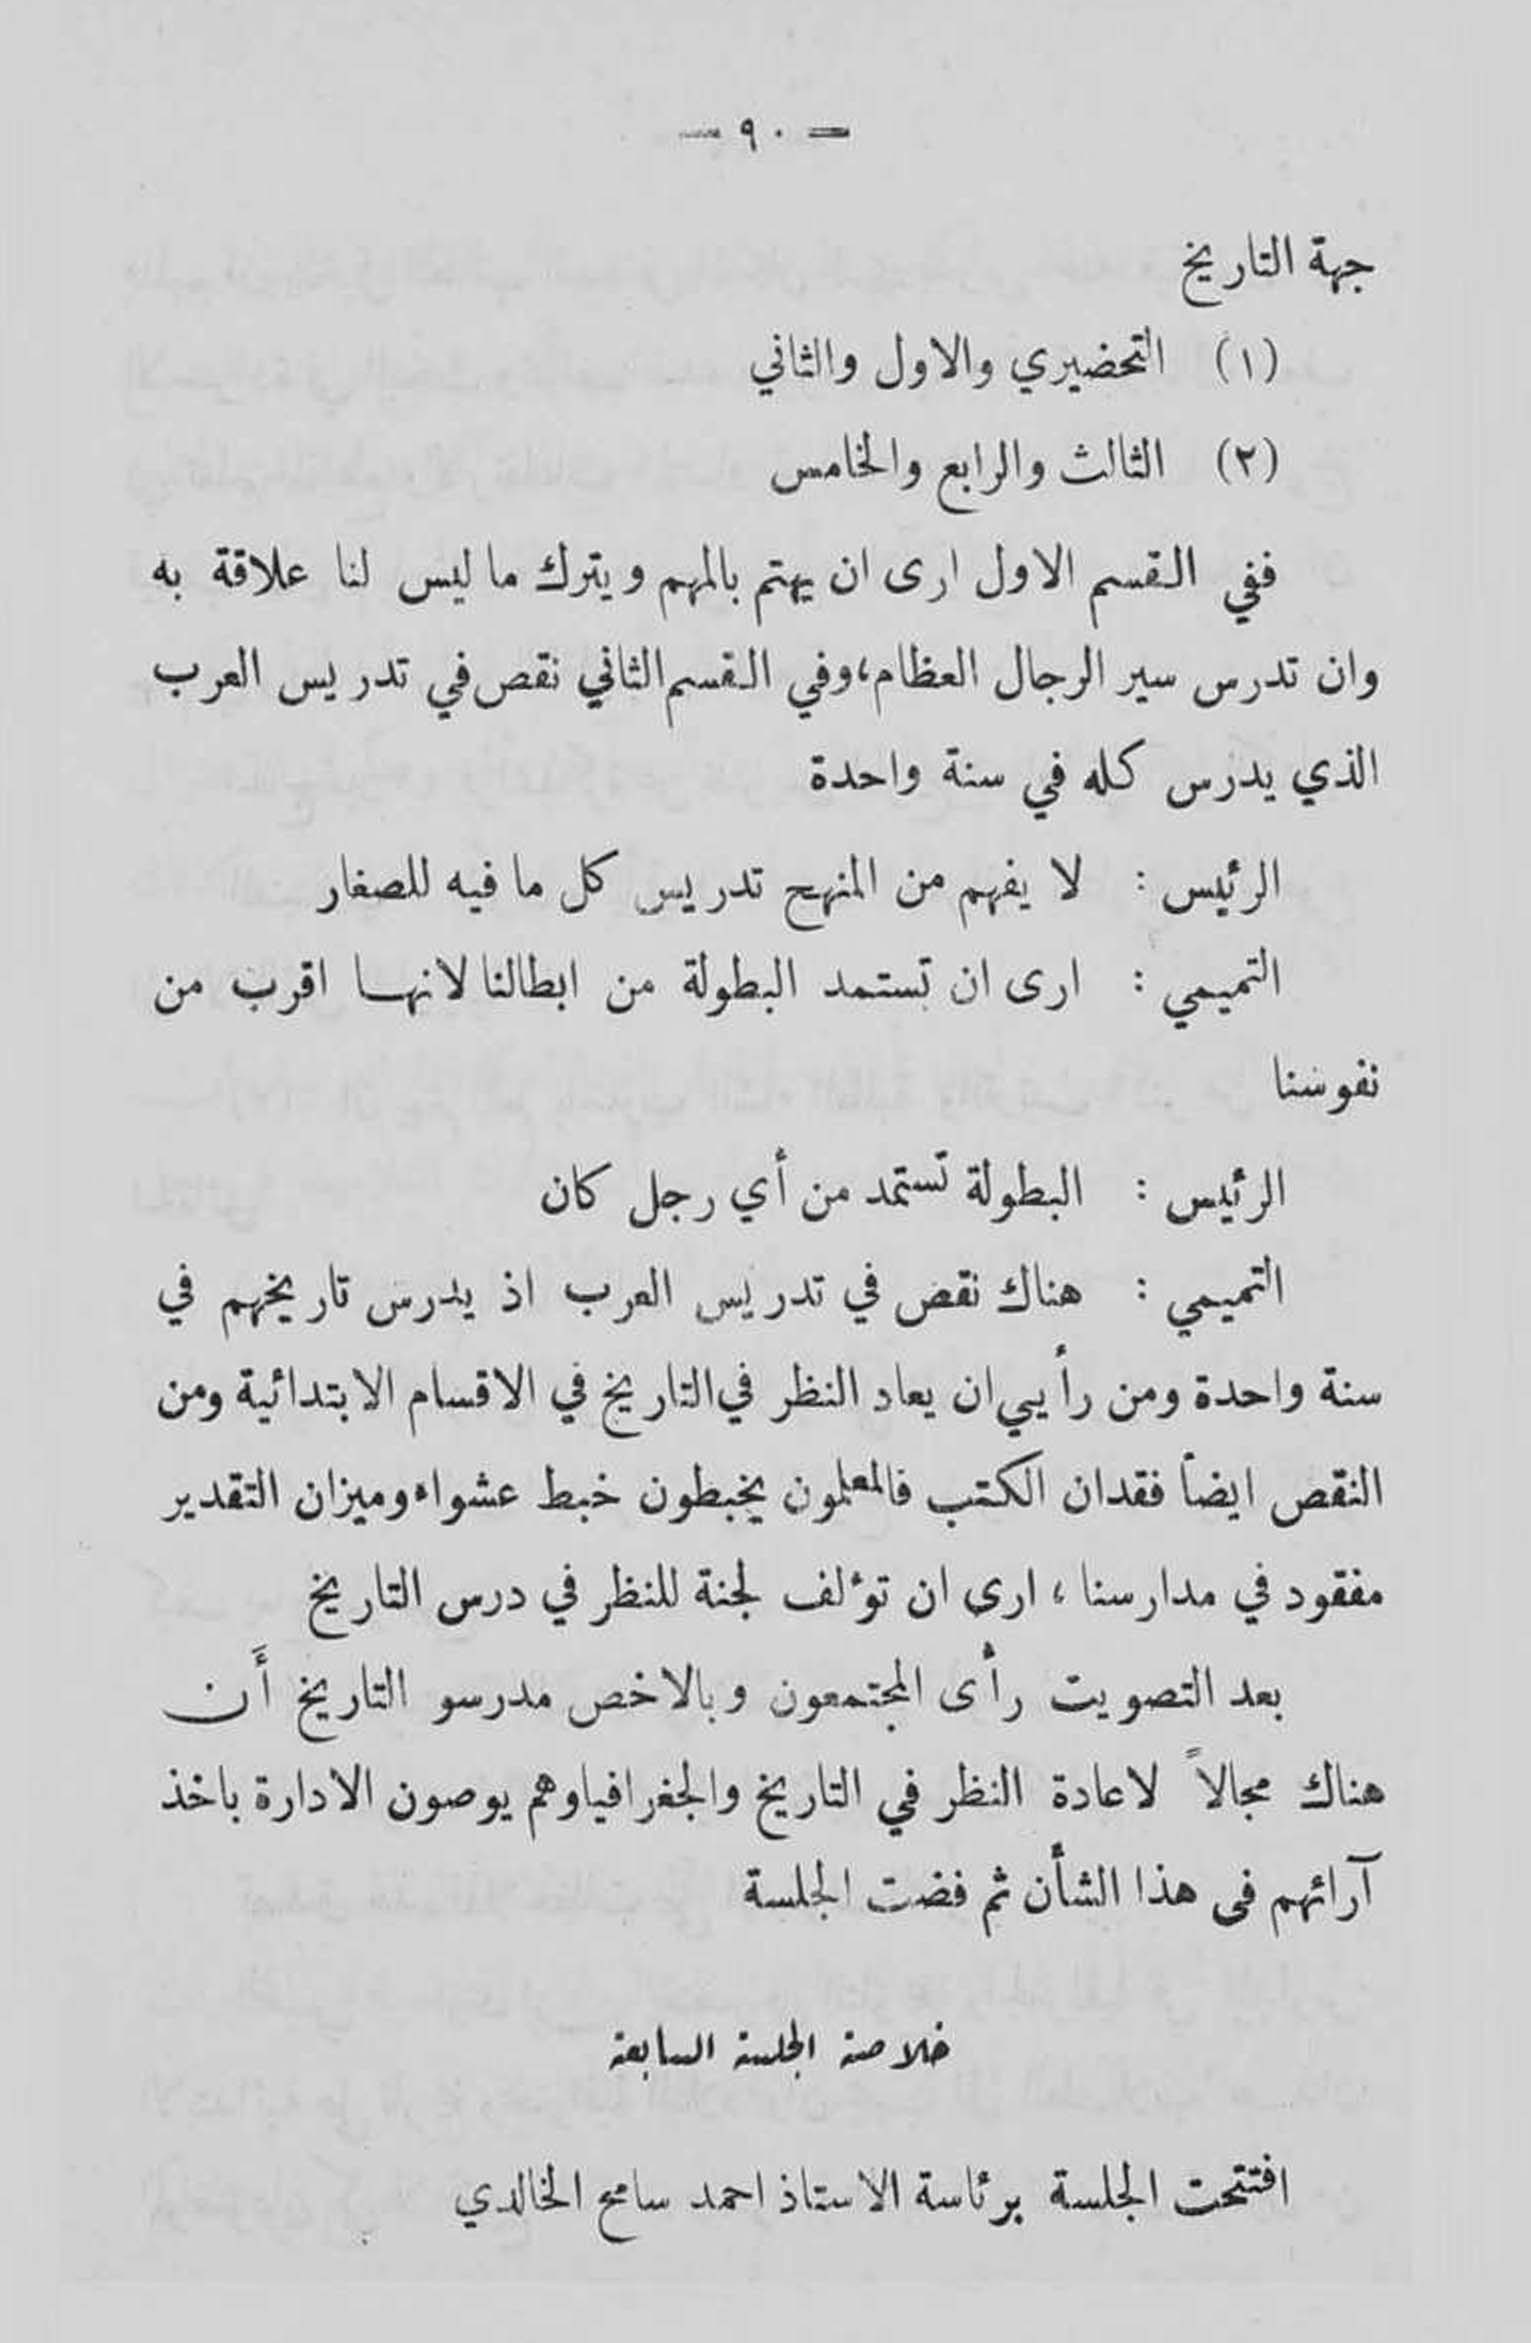 — ٩٠ —
جهة التاريخ
(١) التحضيري والاول والثاني
(٢) الثالث والرابع والخامس
ففي القسم الاول ارى ان يهتم بالمهم ويترك ما ليس لنا علاقة به
وان تدرس سير الرجال العظام، وفي القسم الثاني نقص في تدريس العرب
الذي يدرس كله في سنة واحدة
الرئيس : لا يفهم من المنهج تدريس كل ما فيه للصغار
التميمي : ارى ان تستمد البطولة من ابطالنا لانهـا اقرب من
نفوسنا
الرئيس : البطولة تستمد من أي رجل كان
التميمي : هناك نقص في تدريس العرب اذ يدرس تاريخهم في
سنة واحدة ومن رأيي ان يعاد النظر في التاريخ في الاقسام الابتدائية ومن
النقص ايضاً فقدان الكتب فالمعلمون يخبطون خبط عشواء وميزان التقدير
مفقود في مدارسنا ، ارى ان تؤلف لجنة للنظر في درس التاريخ
بعد التصويت رأى المجتمعون وبالاخص مدرسو التاريخ أَن
هناك مجالاً لاعادة النظر في التاريخ والجغرافيا وهم يوصون الادارة باخذ
آرائهم في هذا الشأن ثم فضت الجلسة
خلاصة الجلسة السابعة
افتتحت الجلسة برئاسة الاستاذ احمد سامح الخالدي